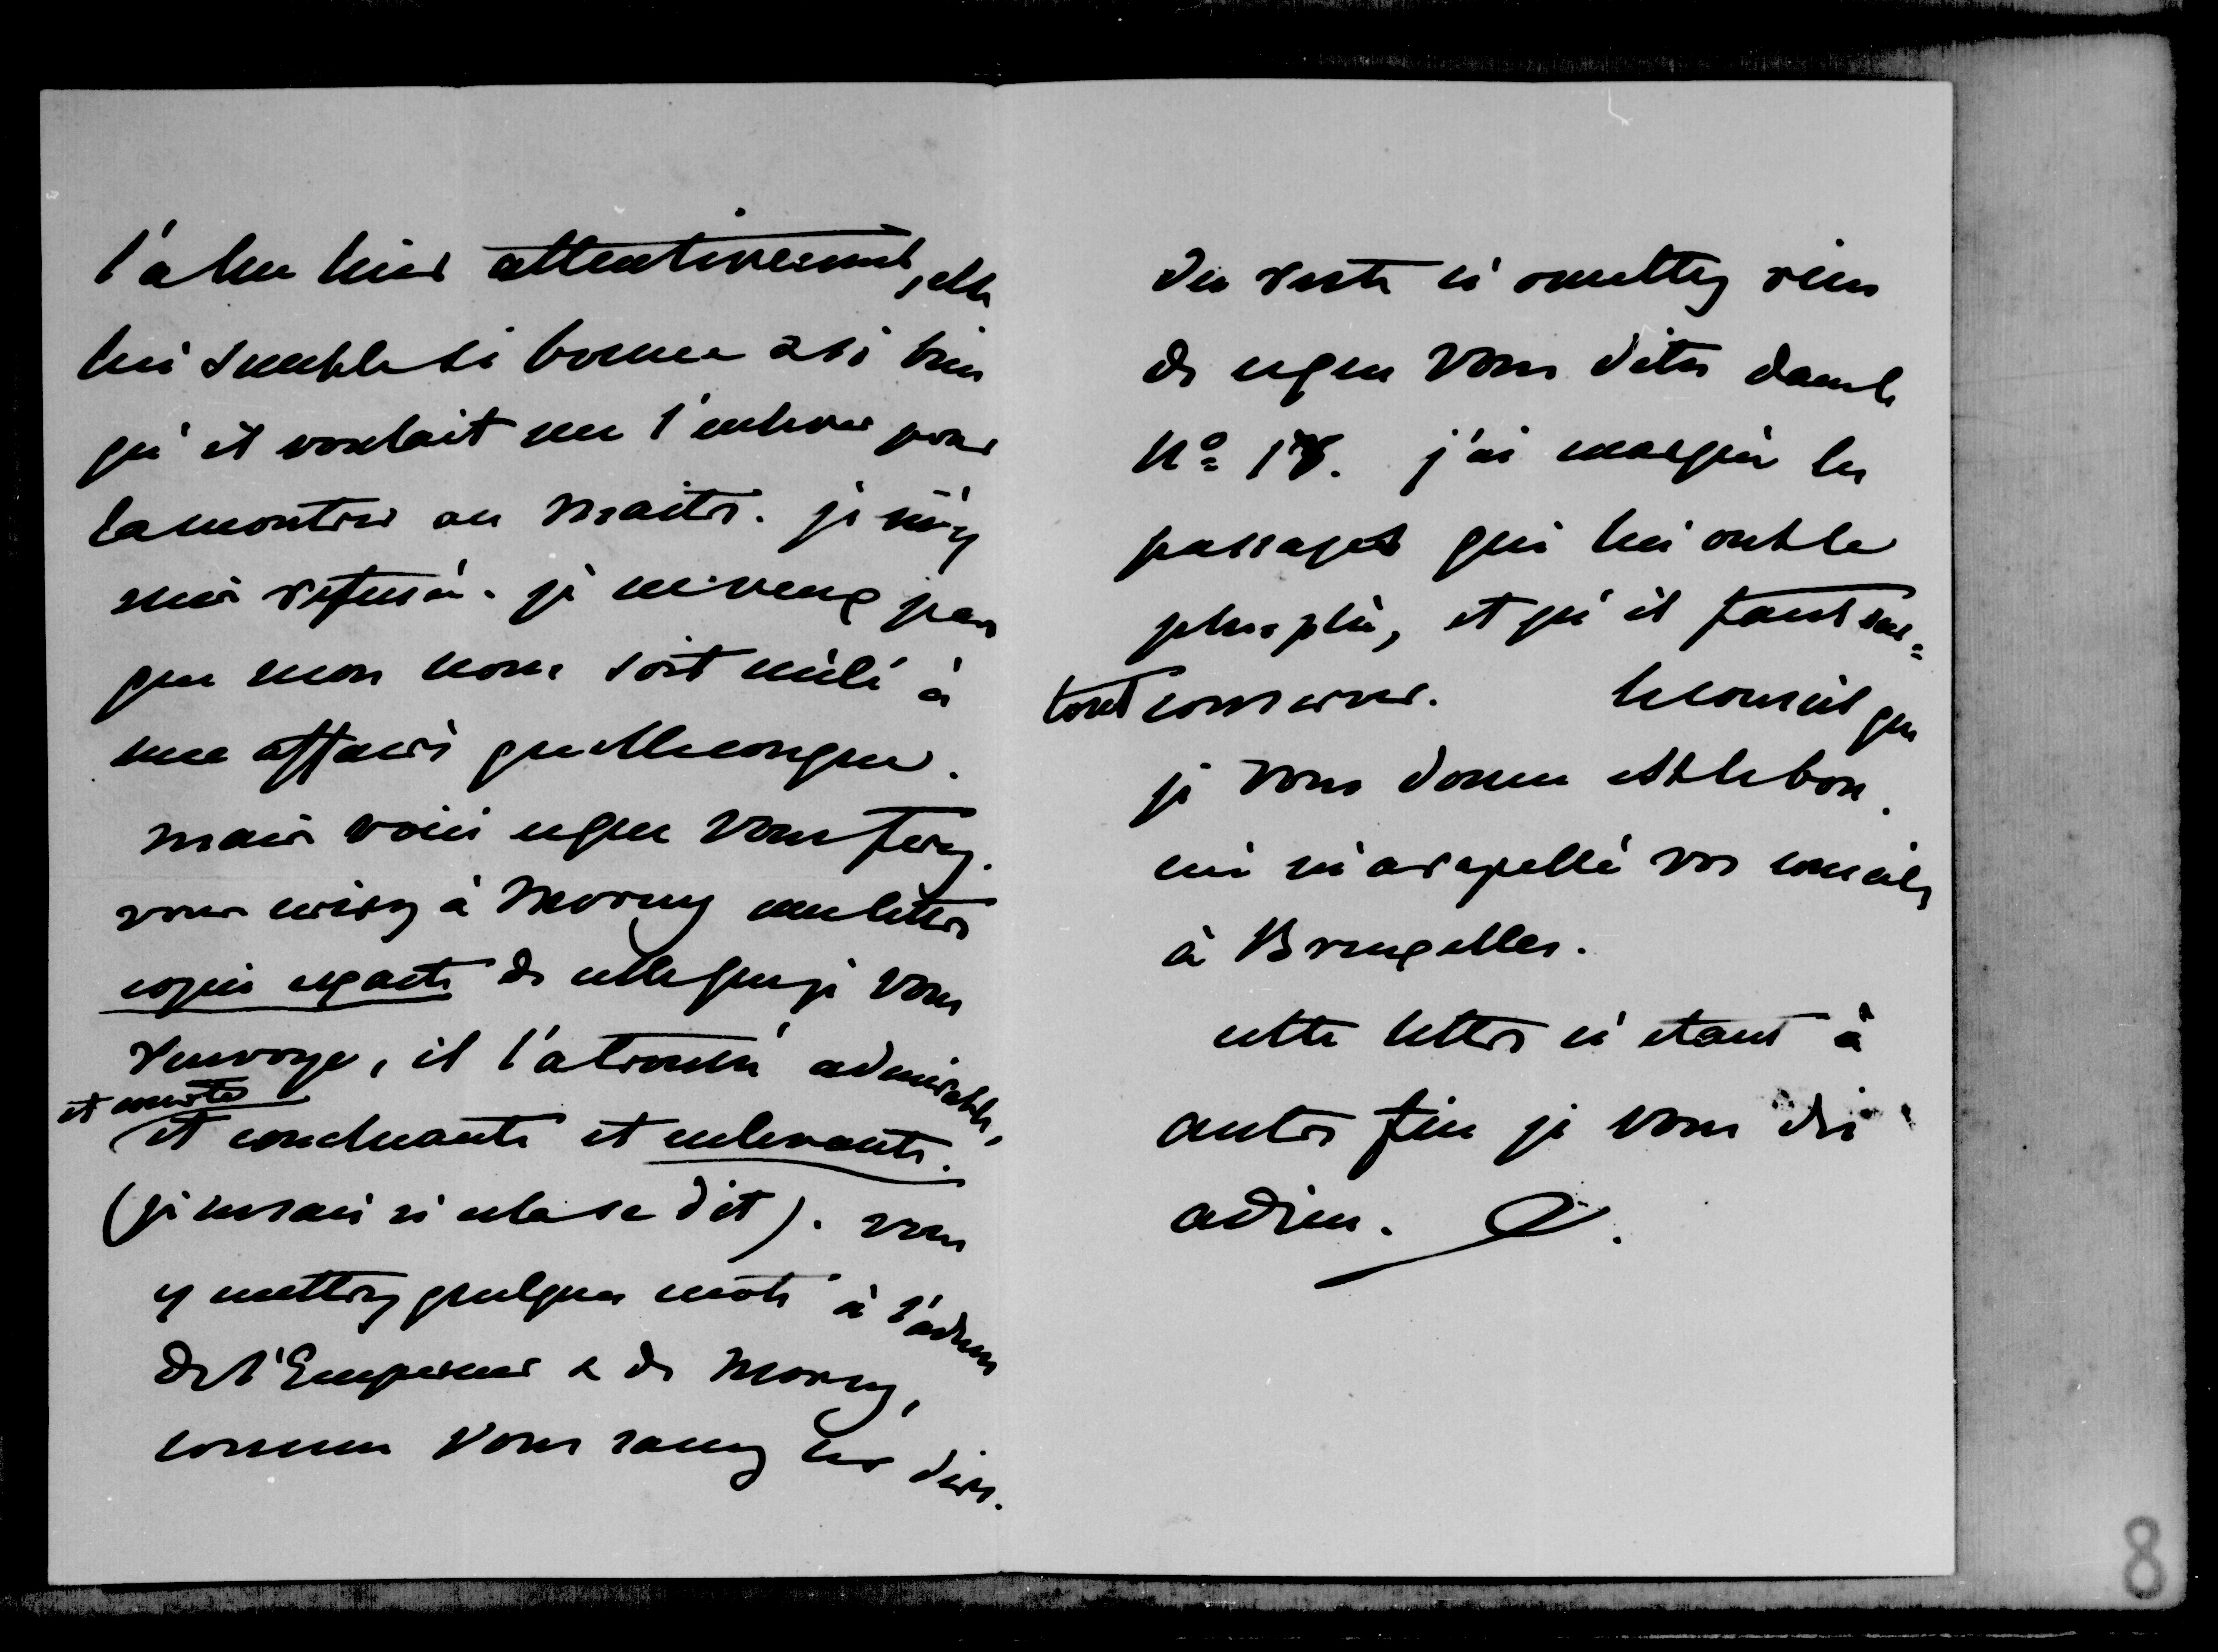 l'a lue hier attentivement, elle
lui semble si bonne & si bien
qu'il voulait me l'enlever pour
la montrer au Maitre. je m'y
suis refusée. je ne veux pas
que mon nom soit mêlé à
une affaire quelleconque.
mais voici ce que vous ferez.
vous écrirez à Morny une lettre
copie exacte de celle que je vous
renvoye, il l'a trouvée admirable,
et courte
et concluante et enlevante.
(je ne sais si cela se dit). vous
y mettrez quelques mots à l'adresse
de l'Empereur & de Morny,
comme vous savez les dire.
du reste n'omettez rien
de ce que vous dites dans le
No 18. j'ai marqué les
passages qui lui ont le
plus plû, et qu'il faut sur=
tout conserver. le conseil que
je vous donne est le bon.
ceci m'a rapellé vos conseils
à Bruxelles.
cette lettre n'étant à
autre fin je vous dis
adieu.
8